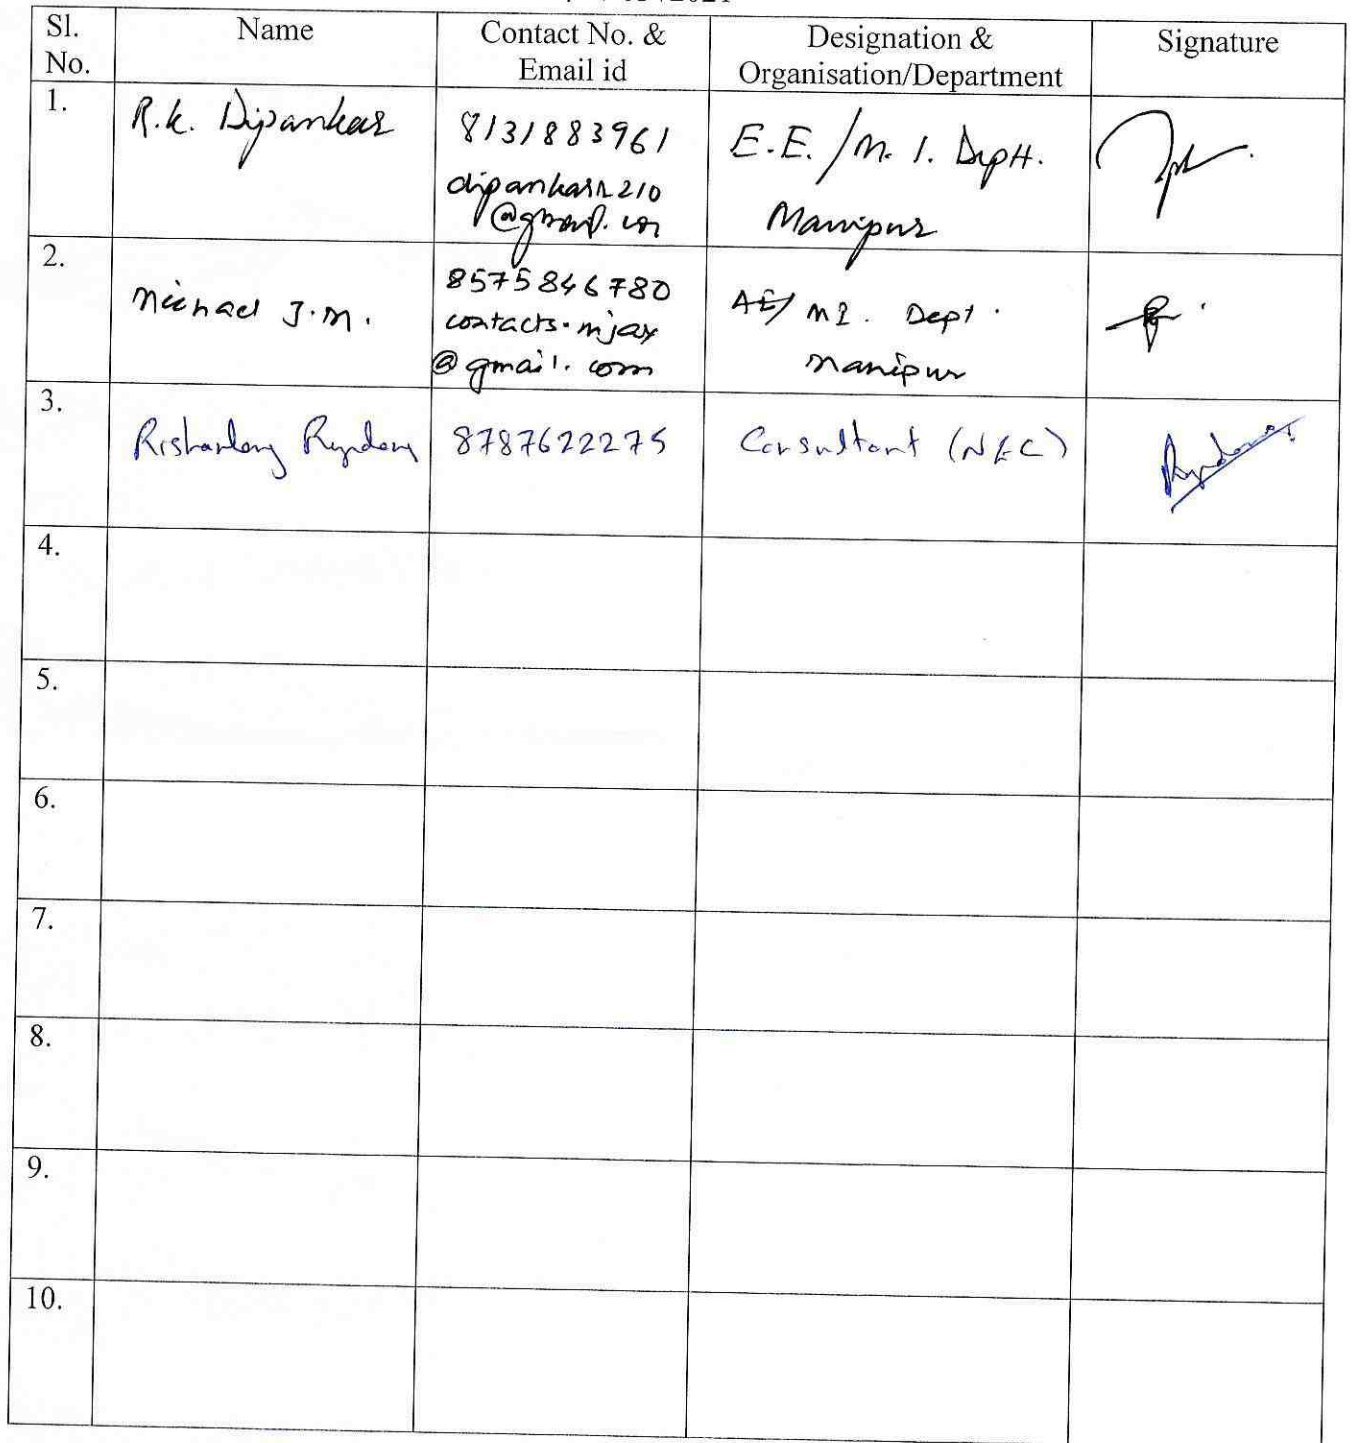 Sl. No.
Name
Contact No. & Email id
Designation & Organisation/Department
Signature
1.
R.k. Dipankar
8131883961
dipankarr210
@gmail.com
E.E./M. I. Deptt.
Manipur
2.
Michael J.M.
8575846780
contacts.mjax
@gmail.com
AE/ MI. Dept.
Manipur
3.
8787622275
Consultant (NEC)
4.
5.
6.
7.
8.
9.
10.